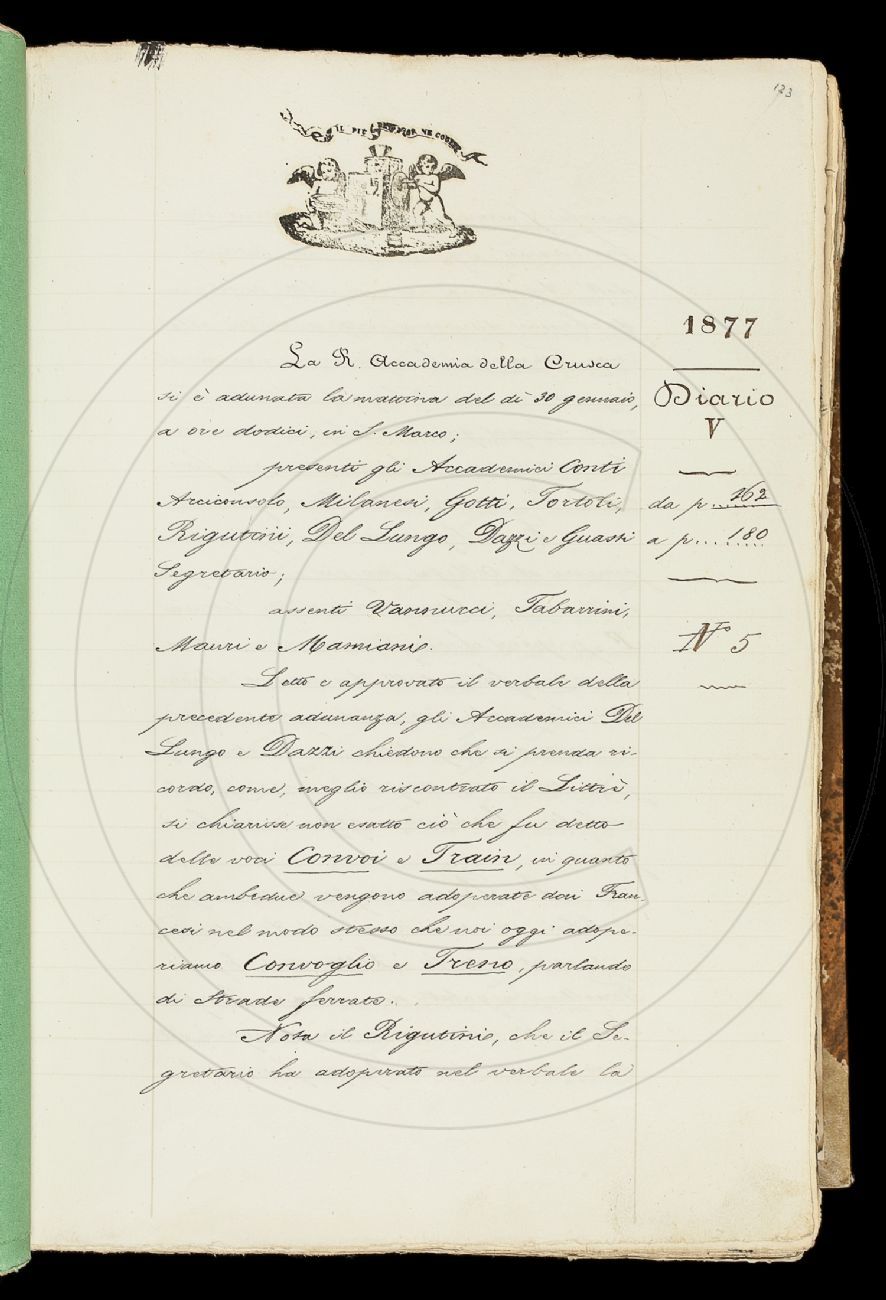 133
IL PIÙ BEL FIOR NE COGLIE
La R. Accademia della Crusca
si è adunata la mattina del dì 30 gennaio,
a ore dodici, in S. Marco;
presenti gli Accademici Conti
Arciconsolo, Milanesi, Gotti, Tortoli,
Rigutini, Del Lungo, Dazzi e Guasti
Segretario;
assenti Vannucci, Tabarrini,
Mauri e Mamiani.
Letto e approvato il verbale della
precedente adunanza, gli Accademici Del
Lungo e Dazzi chiedono che si prenda ri-
cordo, come, meglio riscontrato il Littrè,
si chiarisse non esatto ciò che fu detto
delle voci Convoi e Train, in quanto
che ambedue vengono adoperate dai Fran-
cesi nel modo stesso che noi oggi adope-
riamo Convoglio e Treno, parlando
di strade ferrate.
Nota il Rigutini, che il Se-
gretario ha adoperato nel verbale la
1877
Diario
V
da p. 162
a p. 180
N° 5